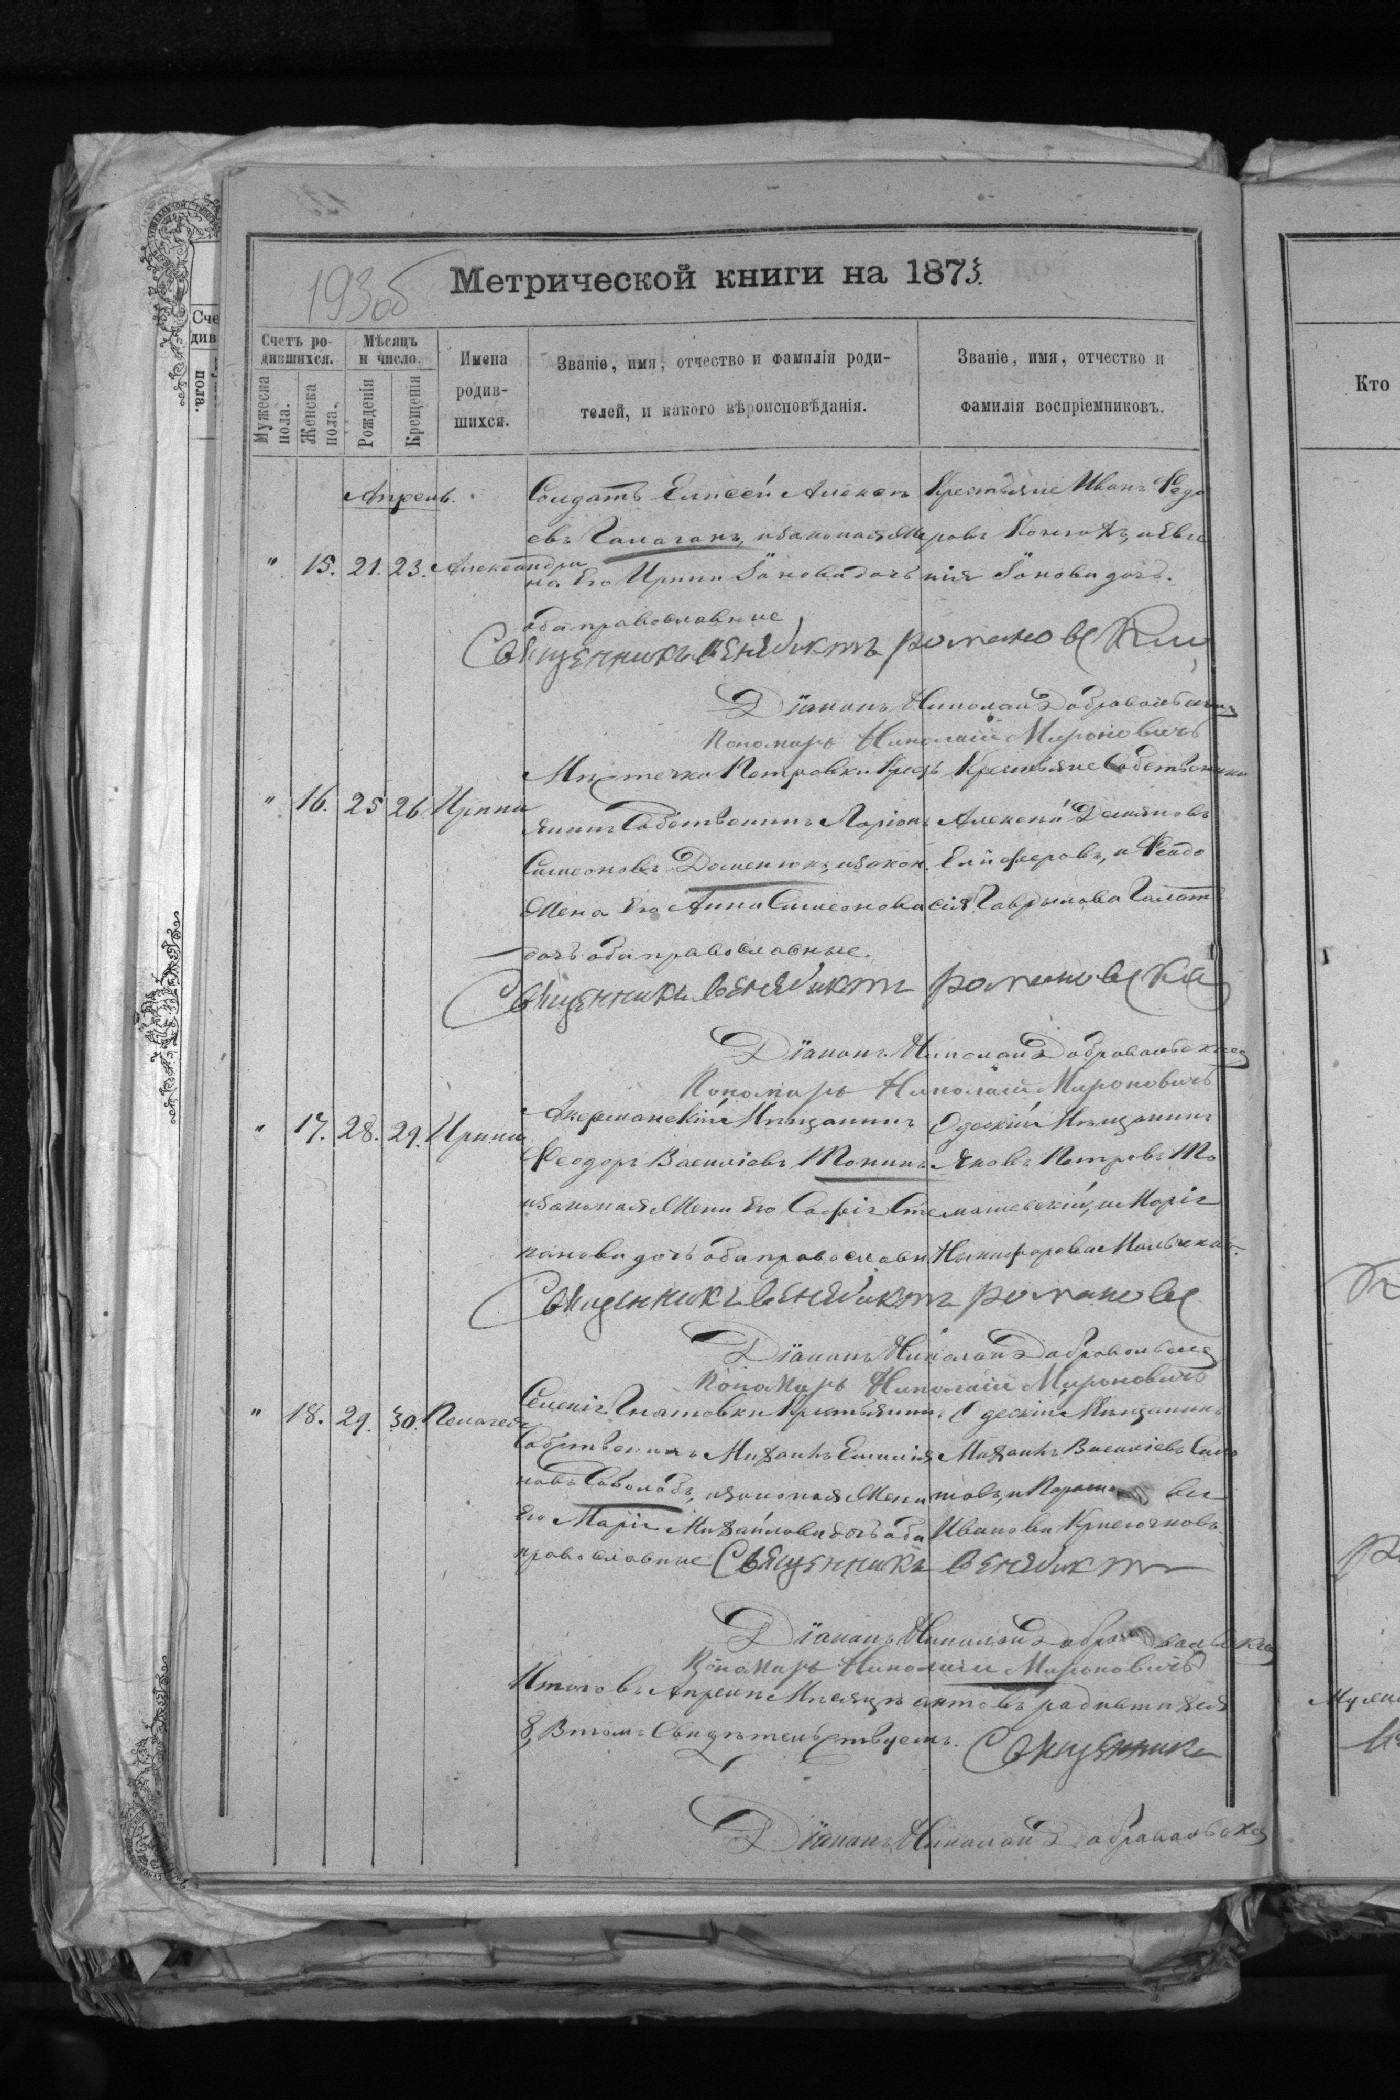 193об
Метрической книги на 1873.
Счетъ ро-
дившихся.
Мужеска
пола.
Женска
пола.
Мѣсяцъ
и число.
Рожденія
Крещенія
Имена
родив-
шихся.
Званіе, имя, отчество и фамилія роди-
телей, и какого вѣроисповѣданія.
Званіе, имя, отчество и
фамилія воспріемниковъ.
Кто
Апрель.
" 15. 21. 23. Александра
Солдатъ Елисей Алексѣ
евъ Галаганъ, изаконая Же
на Его Ирина Іонова дочь
оба православные
Крестьяне Иванъ Федо
ровъ и Евге
нія Іонова дочь.
Священникъ Венедиктъ Романовскій
Діаконъ Николай Добровольскій
Пономарь Николай Мироновичъ
" 16. 25 26 Ирина
Мѣстечка Петровки Крестъ
янинъ Собственникъ Ларіонъ
Симеоновъ Доменюкъ, изакон.
Жена Его Анна Симеонова
дочь оба православные.
Крестьяне Собственники
Алексей Демяновъ
Елисферовъ, и Феодо
сія Гаврилова
Священникъ Венедиктъ Романовскій
Діаконъ Николай Добровольскій
Пономарь Николай Мироновичъ
" 17. 28. 29. Ирина
Акерманскій Мѣщанинъ
Феодоръ Василіевъ Тонинъ
изаконая Жена Его Софія Сте
панова дочь оба православн
Одескій Мѣщанинъ
Яковъ Петровъ То
машевскій, и Марія
Никифорова
Священникъ Венедиктъ Романовс
Діаконъ Николай Добровольскій
Пономарь Николай Мироновичъ
" 18. 29. 30. Пелагея
Селенія Игнатовки Крестьянинъ
Собственикъ Михаилъ Емилія
новъ Соболовъ, изаконая Жена
Его Марія Михайлова дочь оба
православные
Одескій Мѣщанинъ
Михаилъ Василіевъ
Иванова
Священникъ Венедиктъ
Діаконъ Николай Добровольскій
Пономарь Николай Мироновичъ
Итого въ Апрели Месяцѣ актовъ родившихся
8, Втомъ Свидѣтельствуемъ. Священникъ
Діаконъ Николай Добровольскій